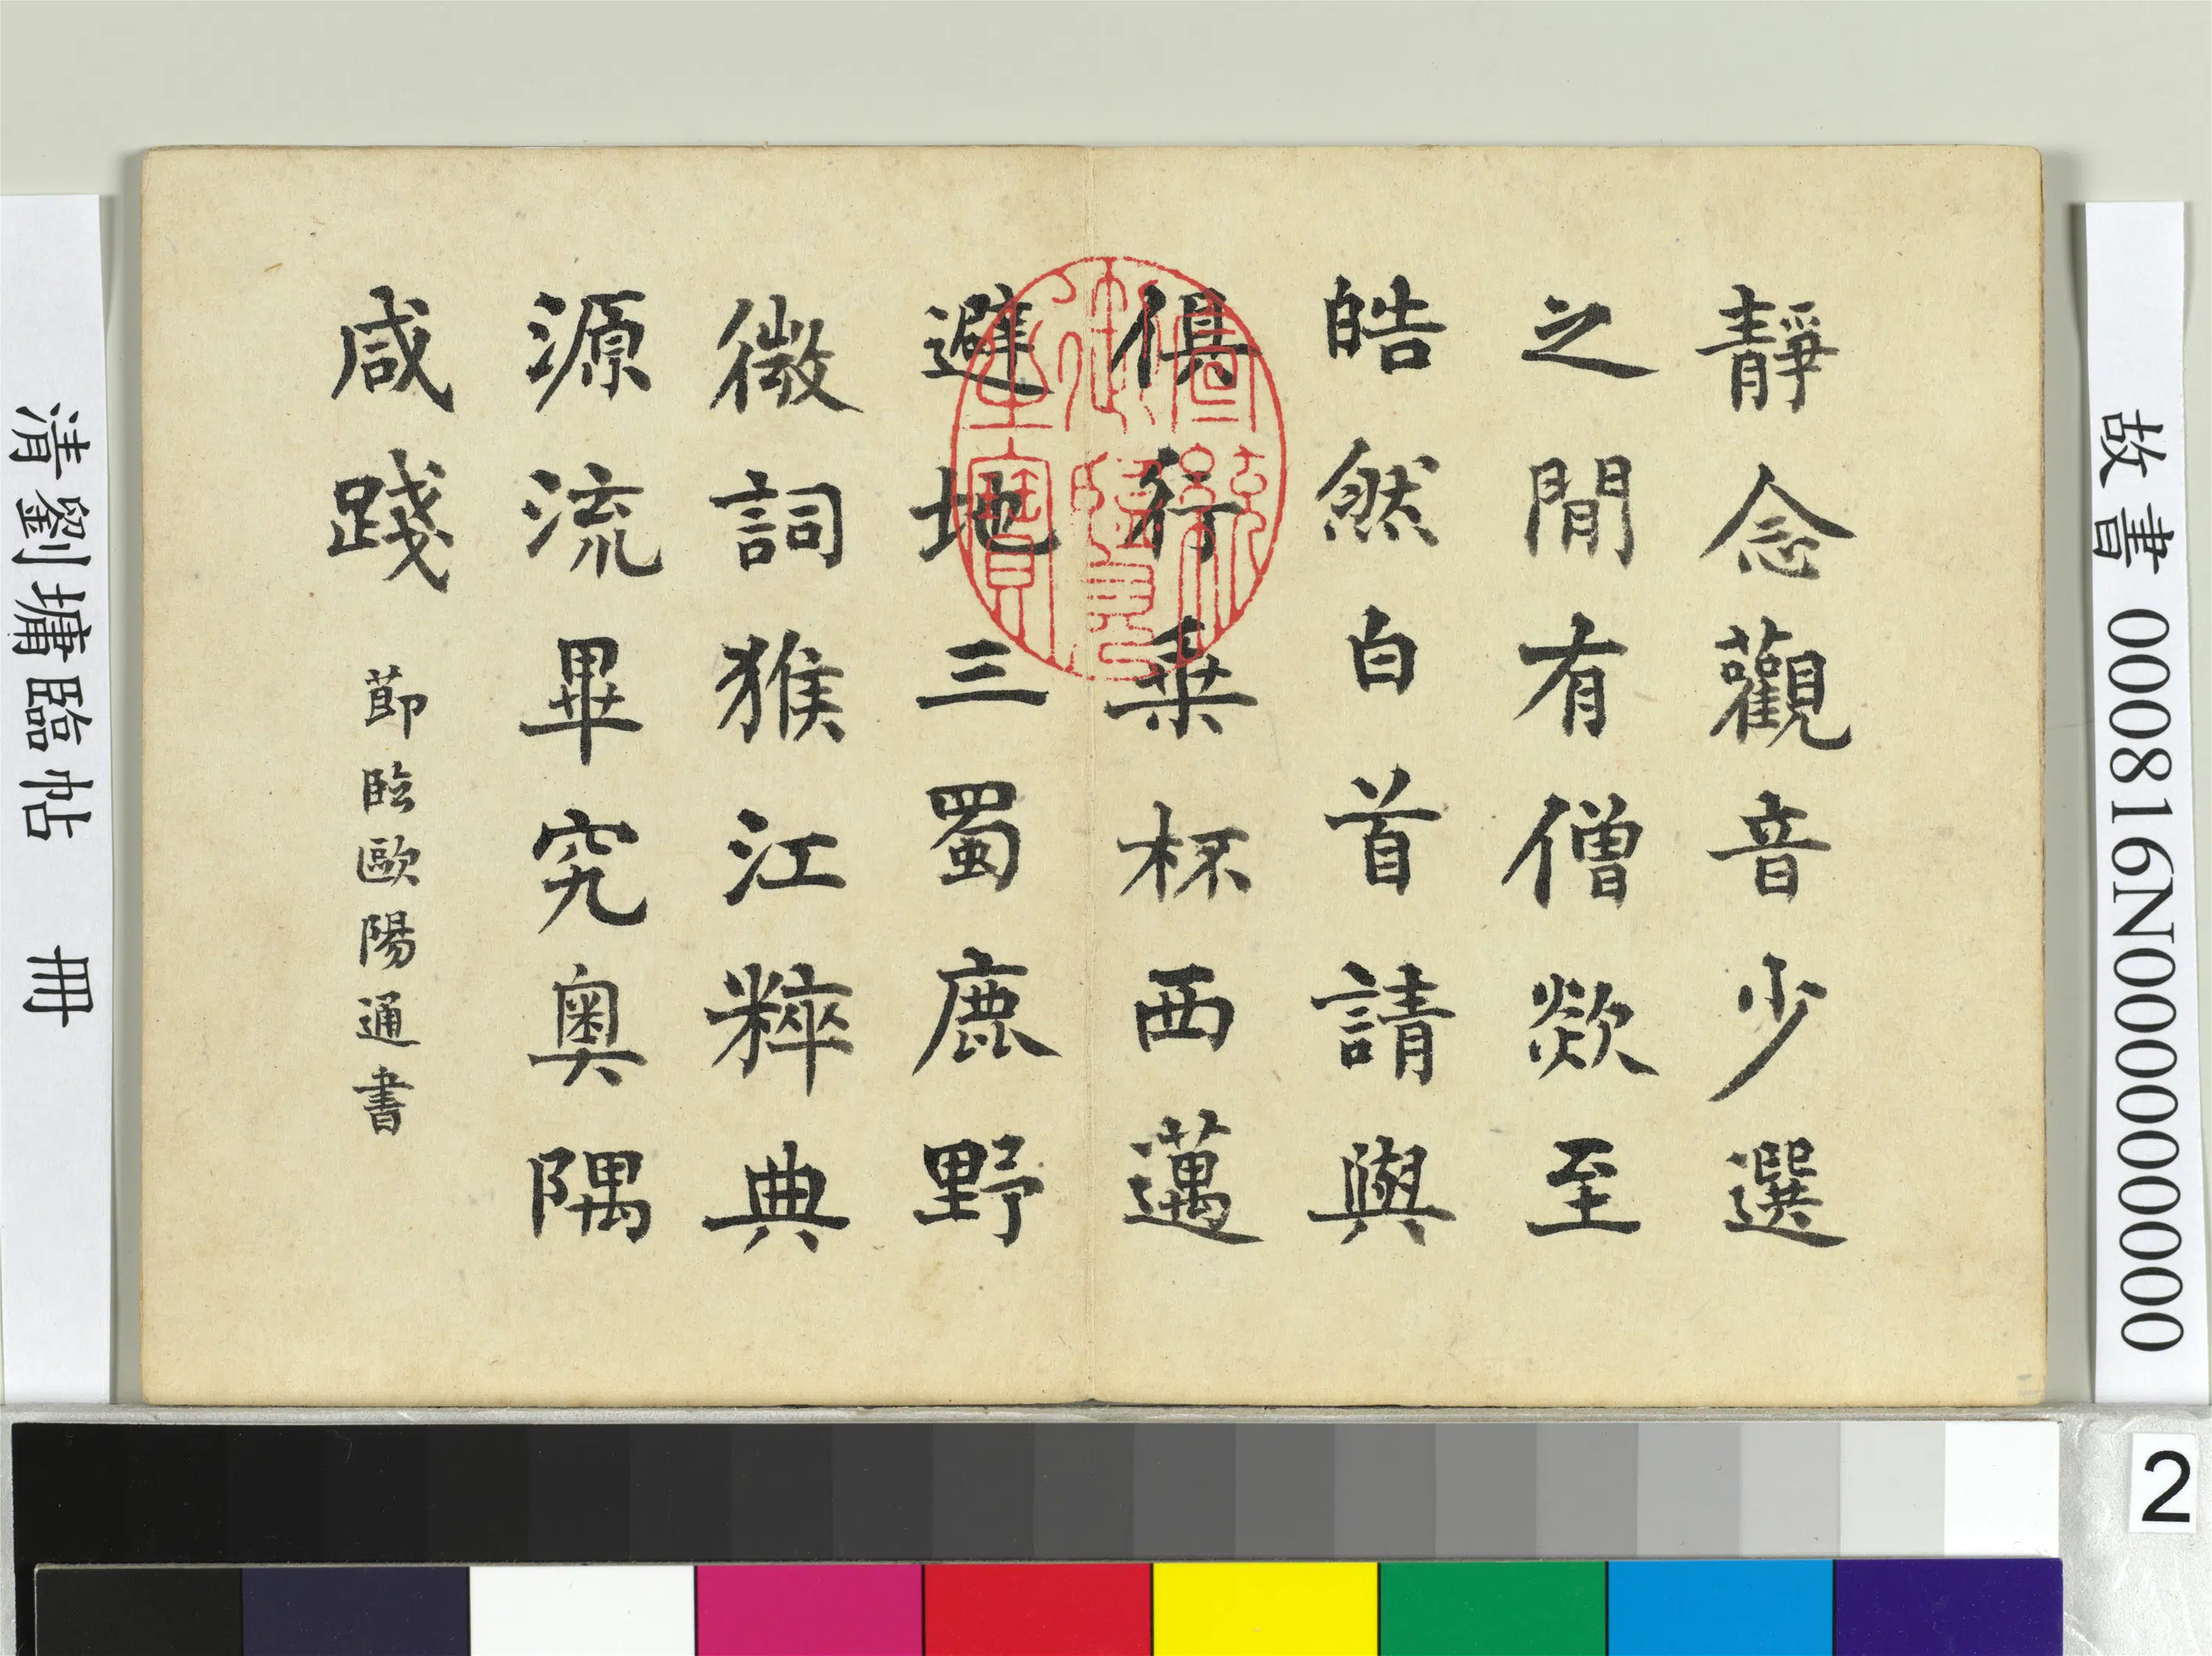 故書000816N000000000
靜念觀音少選
之間有僧欻至
皓然白首請與
俱行乗杯西邁
避地三蜀鹿野
微詞猴江粹典
源流畢究奧隅
咸踐
節臨歐陽通書
清劉墉臨帖 冊
2